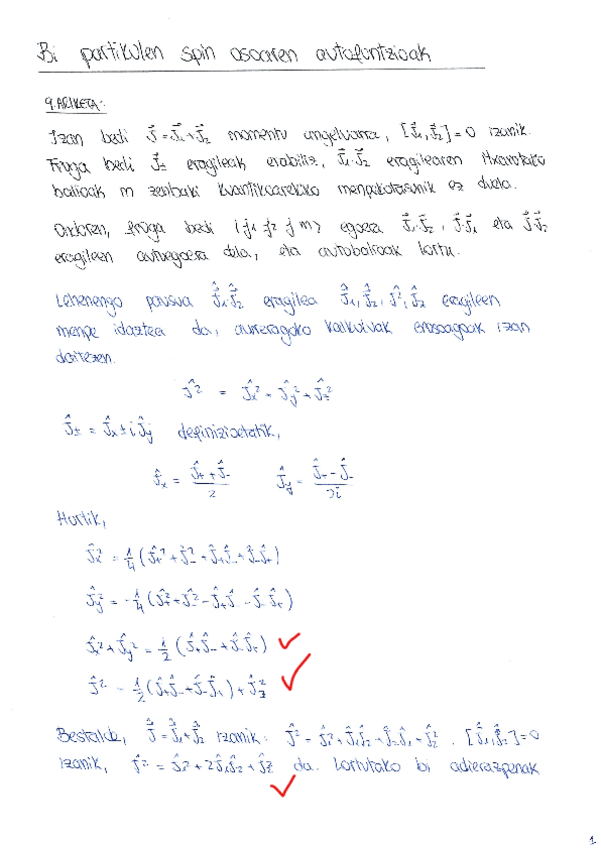 Bi partikulen spin osoaren autofuntzioak
9. ARIKETA:
Izan bedi J⃗=J⃗₁+J⃗₂ momentu angeluarra, [J⃗₁,J⃗₂]=0 izanik.
Froga bedi J⃗± eragileak erabiliz, J⃗₁·J⃗₂ eragilearen itxarotako
balioak m zenbaki kuantikoarekiko menpekotasunik ez duela.
Ondoren, froga bedi |j₁ j₂ j m⟩ egoera J⃗₁·J⃗₂, J⃗·J⃗₁ eta J⃗·J⃗₂
eragileen autoegoera dela, eta autobalioak lortu.
Lehenengo pausua Ĵ₁·Ĵ₂ eragilea Ĵ₁, Ĵ₂, Ĵ², Ĵz eragileen
menpe idaztea da, aurreragoko kalkuluak errazagoak izan
daitezen.
Ĵ² = Ĵx² + Ĵy² + Ĵz²
Ĵ± = Ĵx ± i Ĵy definizioetatik,
Ĵx = (Ĵ+ + Ĵ-)/2 Ĵy = (Ĵ+ - Ĵ-)/2i
Hortik,
Ĵx² = 1/4 (Ĵ+² + Ĵ-² + Ĵ+Ĵ- + Ĵ-Ĵ+)
Ĵy² = -1/4 (Ĵ+² + Ĵ-² - Ĵ+Ĵ- - Ĵ-Ĵ+)
Ĵx² + Ĵy² = 1/2 (Ĵ+Ĵ- + Ĵ-Ĵ+)
Ĵ² = 1/2 (Ĵ+Ĵ- + Ĵ-Ĵ+) + Ĵz²
Bestalde, Ĵ = Ĵ₁+Ĵ₂ izanik: Ĵ² = Ĵ₁² + Ĵ₁Ĵ₂ + Ĵ₂Ĵ₁ + Ĵ₂². [Ĵ₁,Ĵ₂]=0
izanik, Ĵ² = Ĵ₁² + 2Ĵ₁Ĵ₂ + Ĵ₂² da. Lortutako bi adierazpenak
1